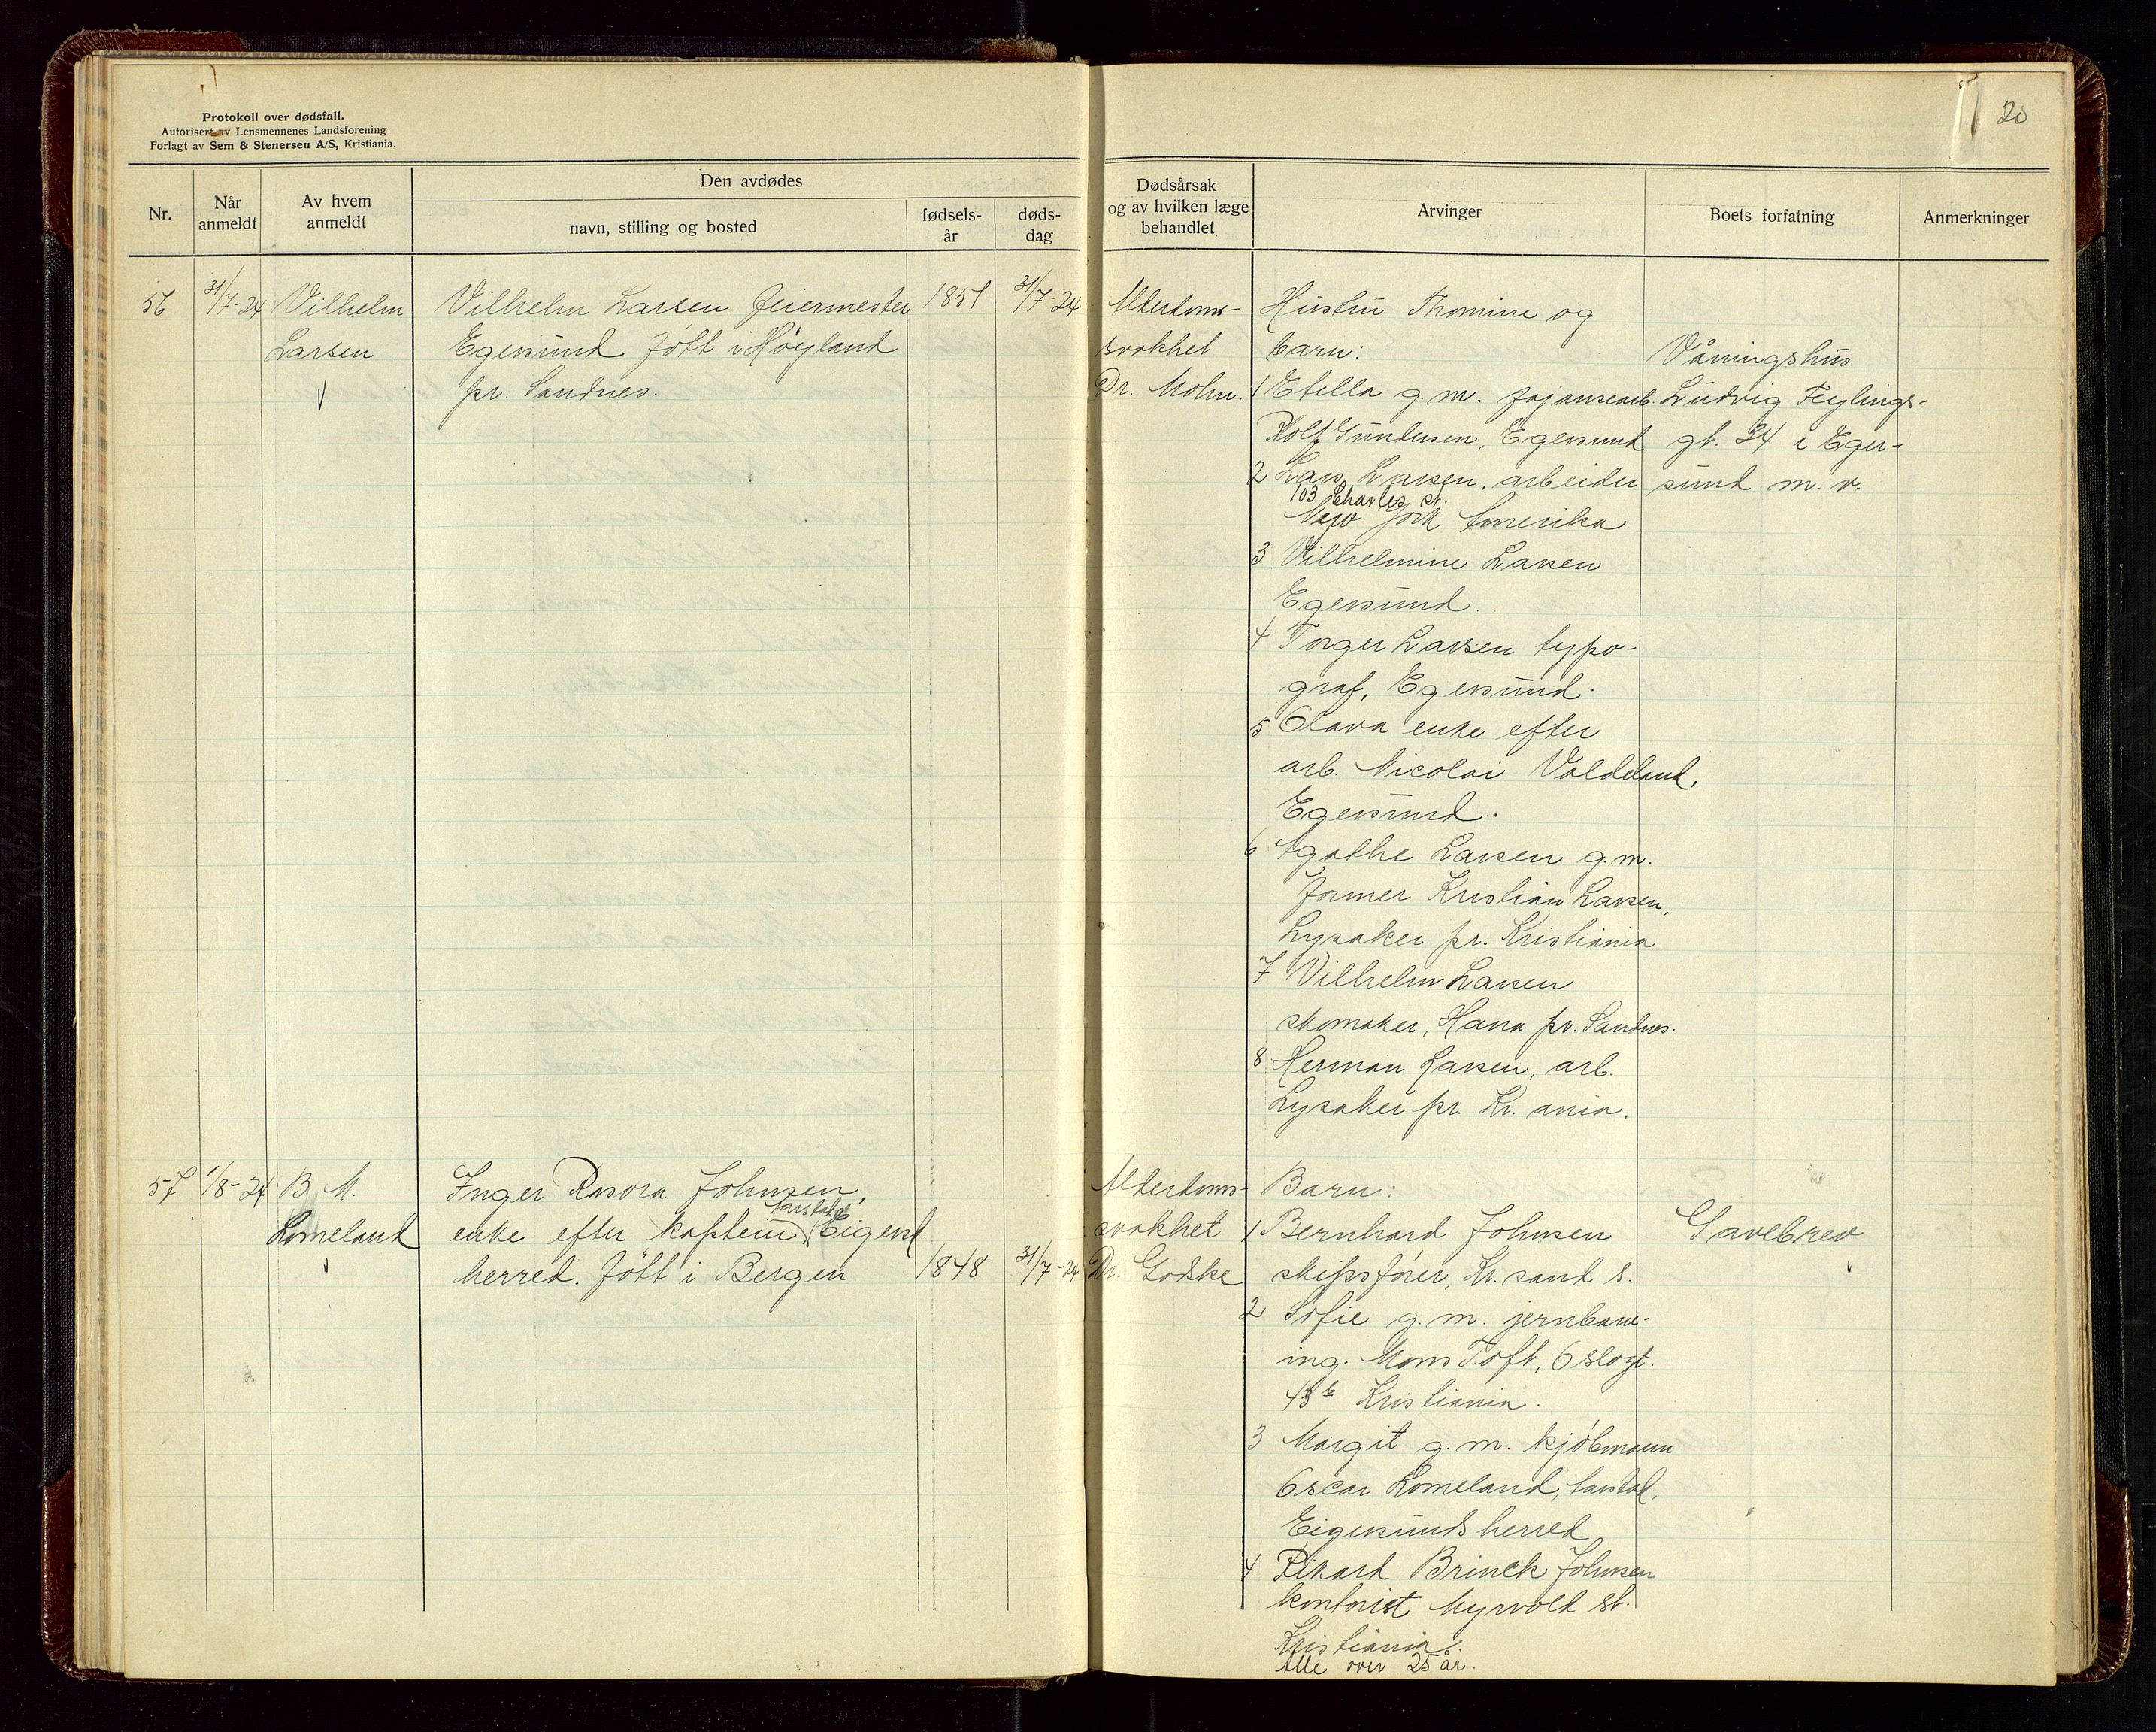 Protokoll over dødsfall.
Autorisert av Lensmennenes Landsforening
Forlagt av Sem & Stenersen A/S, Kristiania.
20
Nr.
Når anmeldt
Av hvem anmeldt
Den avdødes
navn, stilling og bosted
fødselsår
dødsdag
Dødsårsak og av hvilken læge behandlet
Arvinger
Boets forfatning
Anmerkninger
56
31/7-24
Vilhelm
Larsen
Vilhelm Larsen feiermester
Egersund født i Høyland
pr. Sandnes.
1851
31/7-24
Alderdoms-
svakhet
Dr. Mohn.
Hustru Thomine og
barn:
1 Etella g.m. fajansearb.
Rolf Gundersen, Egersund
2 Lars Larsen, arbeider
103 Charles st.
New York Amerika
3 Vilhelmine Larsen
Egersund.
4 Torger Larsen typo-
graf, Egersund.
5 Olava enke efter
arb. Nicolai Valdeland,
Egersund.
6 Agathe Larsen g.m.
former Kristian Larsen,
Lysaker pr. Kristiania
7 Vilhelm Larsen
skomaker, Hana pr. Sandnes.
8 Herman Larsen, arb.
Lysaker pr. Kr.ania.
Våningshus
Ludvig Feylings-
gt. 34 i Eger-
sund m.v.
57
1/8-24
B. M.
Lomeland
Inger Rasora Johnsen,
Tarstad
enke efter kaptein Eigers.
herred. født i Bergen
1848
31/7-24
Alderdoms-
svakhet
Dr. Godske
Barn:
1 Bernhard Johnsen
skipsfører, Kr.sand S.
2 Sofie g.m. jernbane-
ing. Mons Toft, Oslogt.
43b Kristiania.
3 Margit g.m. kjøbmann
Oscar Lomeland,
Eigersunds herred
4 Rikard Brinck Johnsen
kontorist Myrvold st.
Kristiania.
Alle over 25 år.
Gavebrev